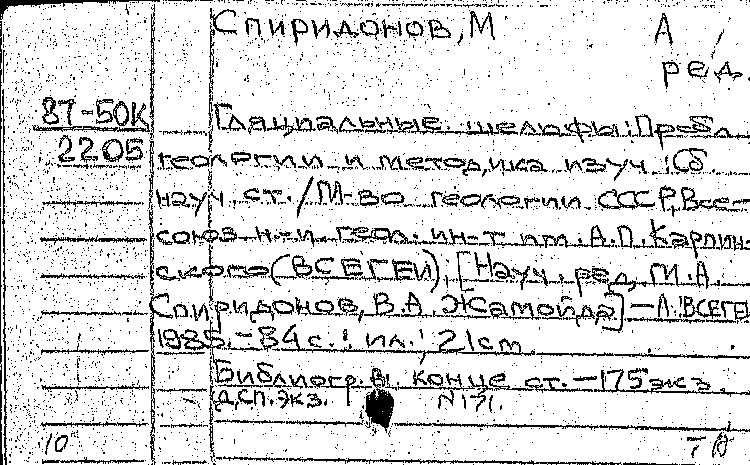 Спиридонов, М А
ред.
87-50К Гляциальные шельфы: Пробл.
2205 геологии и методика изуч.: Сб.
науч. ст./М-во геологии СССР, Все-
союз. н.-и. геол. ин-т им. А.П. Карпин-
ского (ВСЕГЕИ); [Науч. ред. М.А.
Спиридонов, В.А. Жамойда] – Л.: ВСЕГЕИ
1985. – 84 с.: ил.; 21 cm
Библиогр. в конце ст. – 175 экз.
Д.сп. экз. N 171.
10